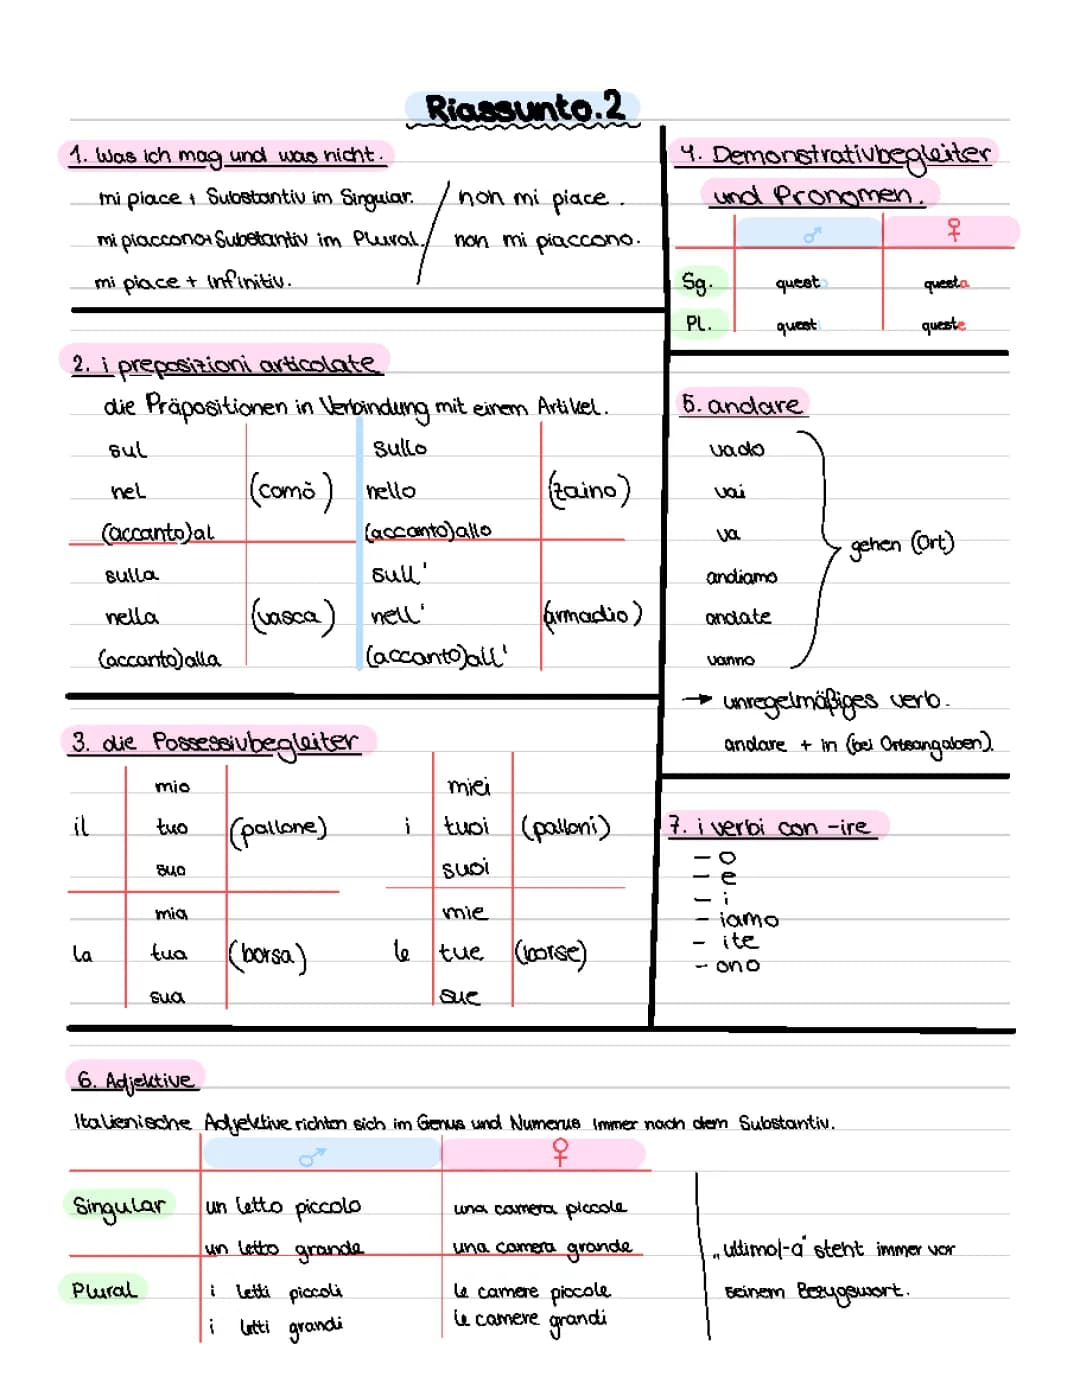 Riassunto.2
1. Was ich mag und was nicht.
mi piace + Substantiv im Singular. / non mi piace.
mi piaccono+Substantiv im Plural. / non mi piaccono.
mi piace + Infinitiv.
2. i preposizioni articolate
die Präpositionen in Verbindung mit einem Artikel.
sul sullo
nel (comò) nello (zaino)
(accanto)al (accanto)allo
sulla sull'
nella (vasca) nell' (armadio)
(accanto)alla (accanto)all'
3. die Possessivbegleiter
mio miei
il tuo (pallone) i tuoi (palloni)
suo suoi
mia mie
la tua (borsa) le tue (borse)
sua sue
4. Demonstrativbegleiter
und Pronomen.
♂ ♀
Sg. questo questa
Pl. questi queste
5. andare
vado
vai
va
gehen (Ort)
andiamo
andate
vanno
→ unregelmäßiges verb.
andare + in (bei Ortsangaben).
7. i verbi con -ire
- o
- e
- i
- iamo
- ite
- ono
6. Adjektive
Italienische Adjektive richten sich im Genus und Numerus immer nach dem Substantiv.
♂ ♀
Singular un letto piccolo una camera piccole
un letto grande una camera grande
Plural i letti piccoli le camere piccole
i letti grandi le camere grandi
„ultimo/-a" steht immer vor
seinem Bezugswort.